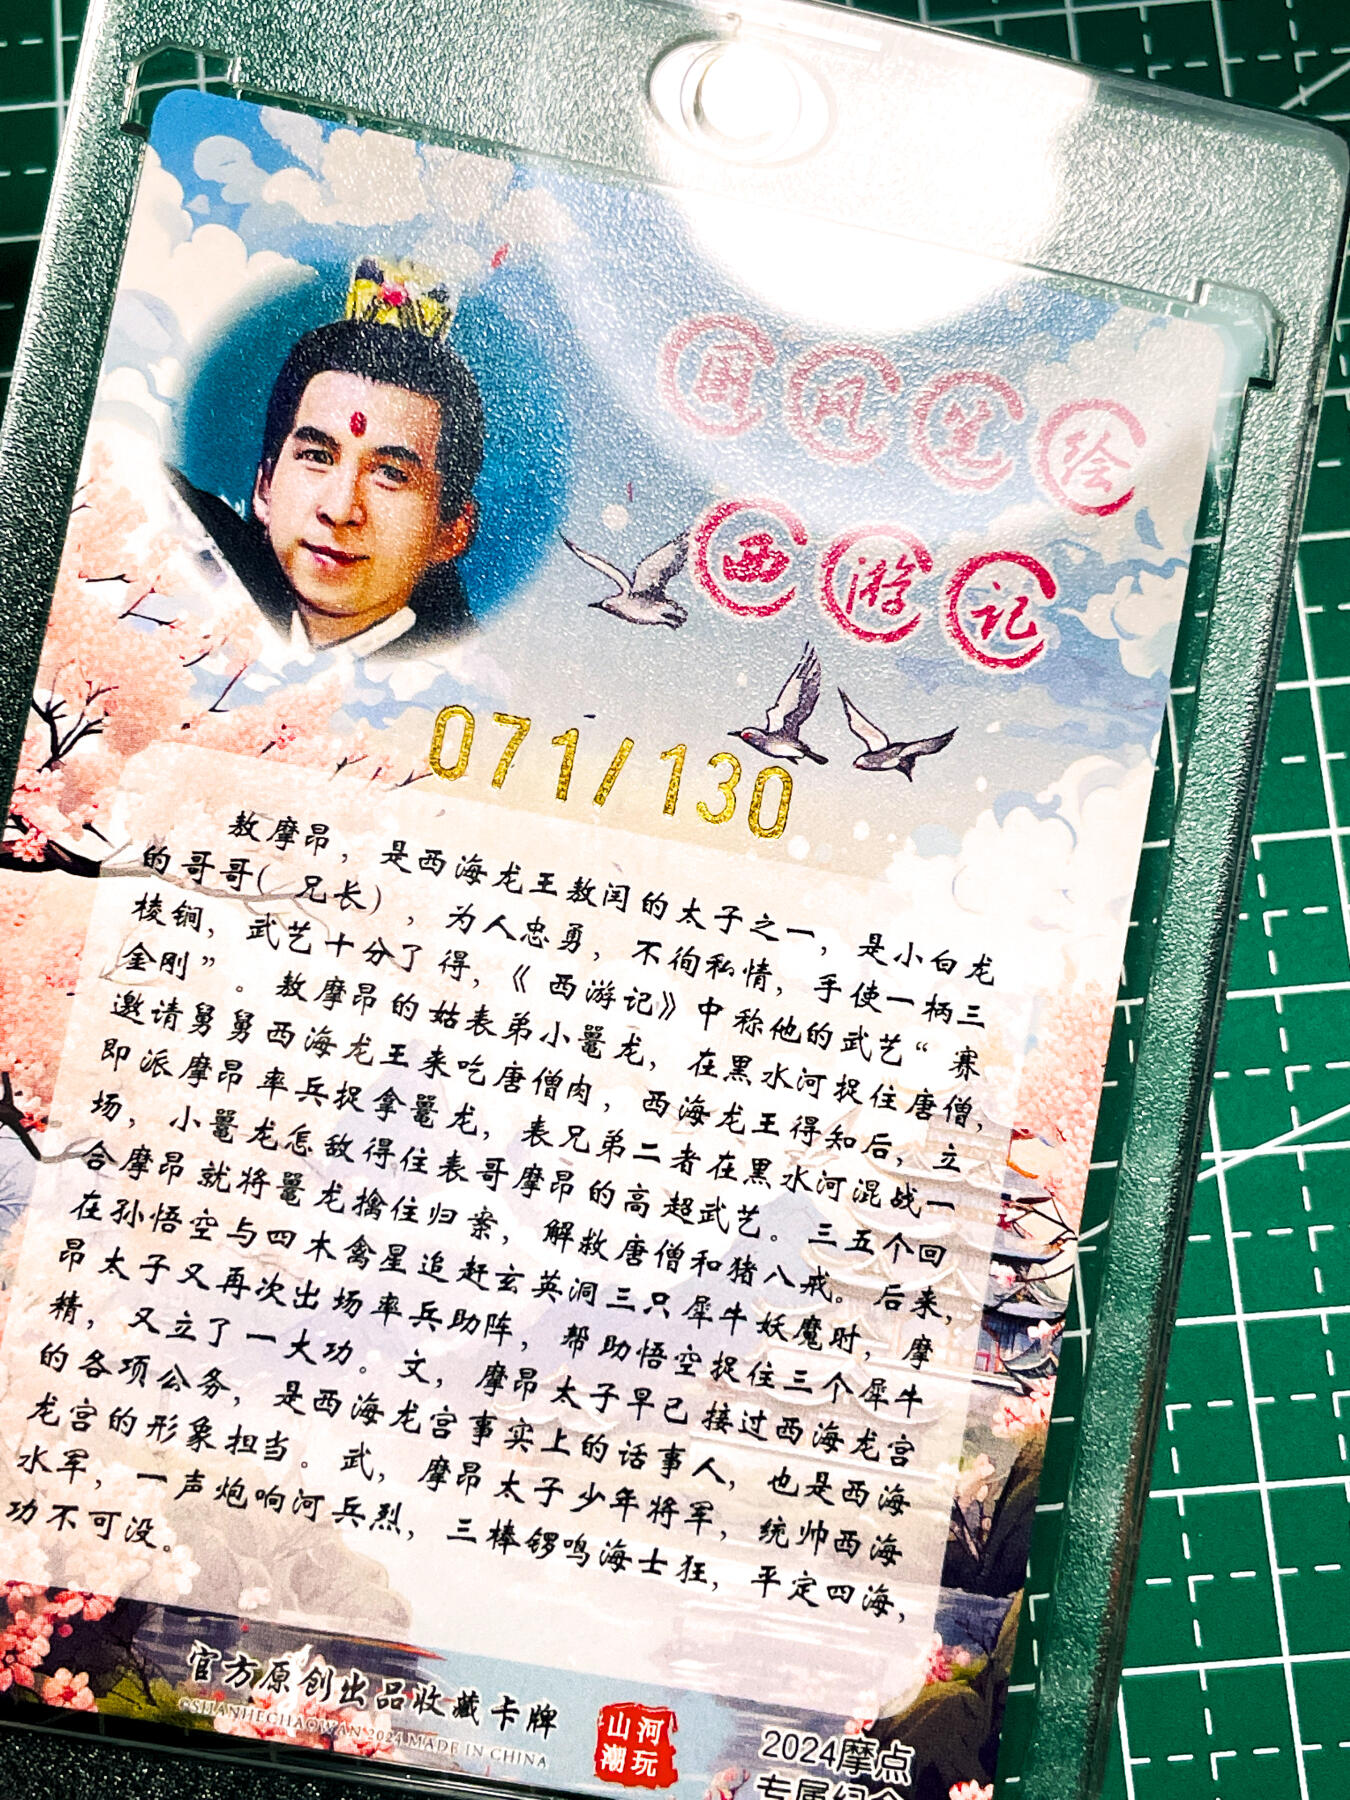 国风笔绘
西游记
071/130
敖摩昂，是西海龙王敖闰的太子之一，是小白龙
的哥哥(兄长)，为人忠勇，不徇私情，手使一柄三
棱锏，武艺十分了得，《西游记》中称他的武艺“赛
金刚”。敖摩昂的姑表弟小鼍龙，在黑水河捉住唐僧，
邀请舅舅西海龙王来吃唐僧肉，西海龙王得知后，立
即派摩昂率兵捉拿鼍龙，表兄弟二者在黑水河混战一
场，小鼍龙怎敌得住表哥摩昂的高超武艺。三五个回
合摩昂就将鼍龙擒住归案，解救唐僧和猪八戒。后来，
在孙悟空与四木禽星追赶玄英洞三只犀牛妖魔时，摩
昂太子又再次出场率兵助阵，帮助悟空捉住三个犀牛
精，又立了一大功。文，摩昂太子早已接过西海龙宫
的各项公务，是西海龙宫事实上的话事人，也是西海
龙宫的形象担当。武，摩昂太子少年将军，统帅西海
水军，一声炮响河兵烈，三棒锣鸣海士狂，平定四海，
功不可没。
官方原创出品收藏卡牌
©SHANHECHAOWAN 2024 MADE IN CHINA
山河
潮玩
2024摩点
专属纪念